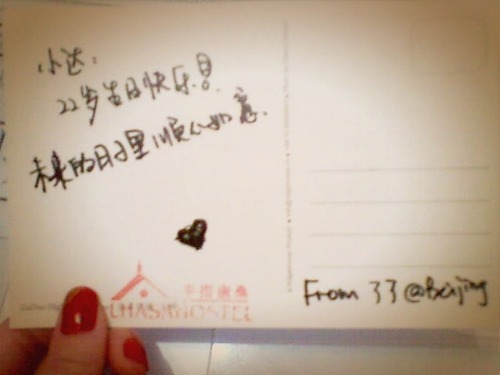 小达:
22岁生日快乐!
未来的日子里顺心如意.
From 33@Beijing